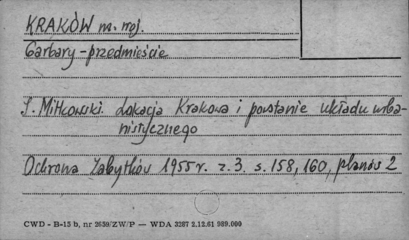 KRAKÓW m. woj.
Garbary - przedmieście
J. Mitkowski. Lokacja Krakowa i powstanie układu urba-
nistycznego
Ochrona Zabytków 1955 r. z. 3. s. 158, 160, planów 2
CWD - B-15 b, nr 2659/ZW/P — WDA 3287 2.12.61 989.000